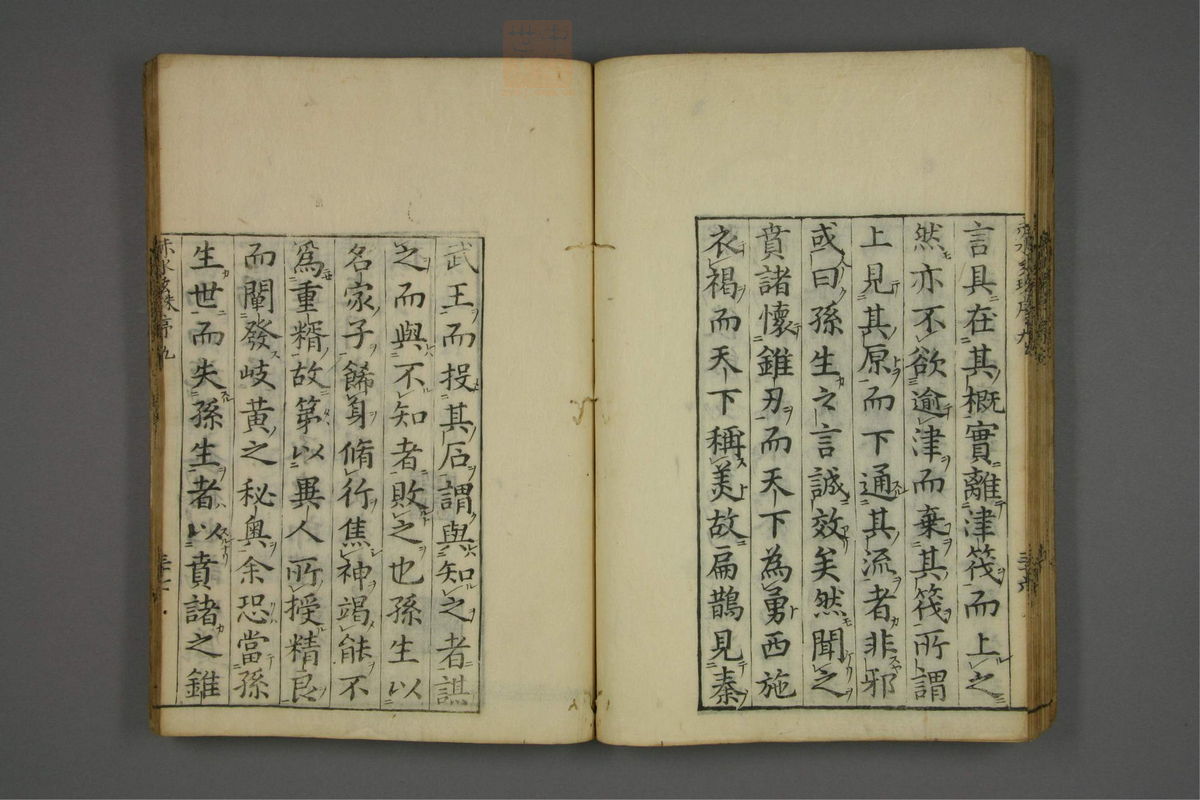 言具在其概實離津筏而上之
然亦不欲逾津而棄其筏所謂
上見其原而下通其流者非邪
或曰孫生之言誠效矣然聞之
賁諸懷錐刃而天下為勇西施
衣褐而天下稱美故扁鵲見秦
武王而投其石謂與知之者謀
之而與不知者敗之也孫生以
名家子餙身脩行焦神竭能不
為重糈故第以異人所授精良
而闡發岐黃之秘奧余恐當孫
生世而失孫生者以賁諸之錐
赤水玄珠序九